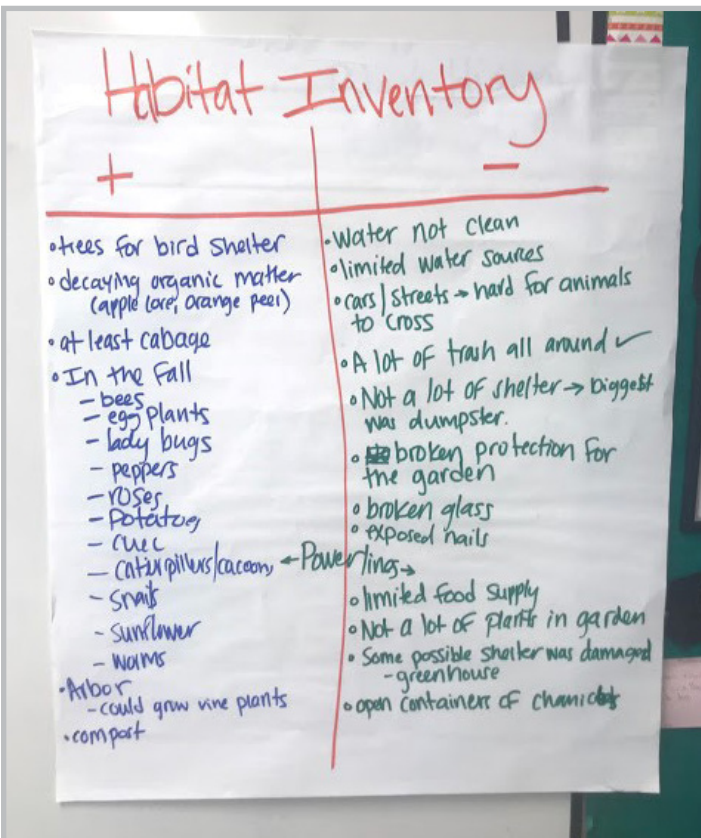 Habitat Inventory
+
•trees for bird shelter
•decaying organic matter
(apple core, orange peel)
•at least cabage
•In the Fall
- bees
- egg plants
- lady bugs
- peppers
- roses
- Potatoes
- caterpillers/cacoons
- snails
- sunflower
- worms
•Arbor
- could grow vine plants
•compost
←Powerlines→
-
•Water not clean
•limited water sources
•cars/streets → hard for animals
to cross
•A lot of trash all around ✓
•Not a lot of shelter → biggest
was dumpster.
•broken protection for
the garden
•broken glass
•exposed nails
•limited food supply
•Not a lot of plants in garden
•Some possible shelter was damaged
- greenhouse
•open containers of